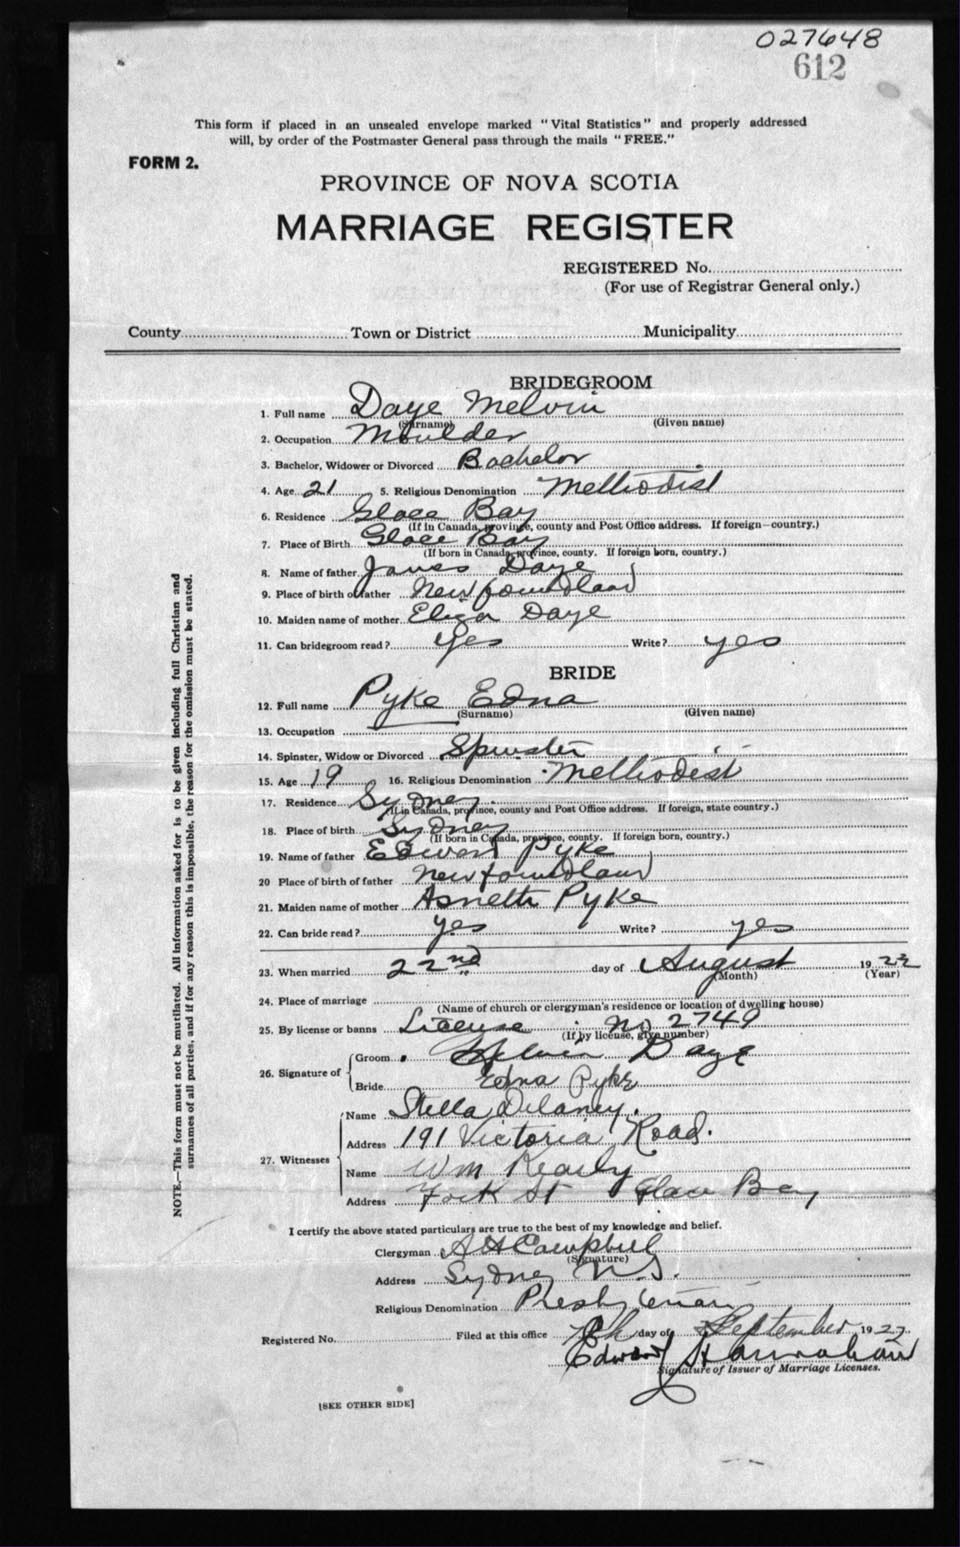 027648
612
This form if placed in an unsealed envelope marked "Vital Statistics" and properly addressed
will, by order of the Postmaster General pass through the mails "FREE."
FORM 2.
PROVINCE OF NOVA SCOTIA
MARRIAGE REGISTER
REGISTERED No.
(For use of Registrar General only.)
County Town or District Municipality
BRIDEGROOM
1. Full name Daye Melvin
(Surname) (Given name)
2. Occupation Moulder
3. Bachelor, Widower or Divorced Bachelor
4. Age 21 5. Religious Denomination Methodist
6. Residence Glace Bay
(If in Canada, province, county and Post Office address. If foreign—country.)
7. Place of Birth Glace Bay
(If born in Canada, province, county. If foreign born, country.)
8. Name of father James Daye
9. Place of birth of father Newfoundland
10. Maiden name of mother Eliza Daye
11. Can bridegroom read? Yes Write? yes
BRIDE
12. Full name Pyke Edna
(Surname) (Given name)
13. Occupation
14. Spinster, Widow or Divorced Spinster
15. Age 19 16. Religious Denomination Methodist
17. Residence Sydney
(If in Canada, province, county and Post Office address. If foreign, state country.)
18. Place of birth Sydney
(If born in Canada, province, county. If foreign born, country.)
19. Name of father Edward Pyke
20 Place of birth of father Newfoundland
21. Maiden name of mother Pyke
22. Can bride read? yes Write? yes
23. When married 22nd day of August 1922
(Month) (Year)
24. Place of marriage
(Name of church or clergyman's residence or location of dwelling house)
25. By license or banns License no 2749
(If by license, give number)
26. Signature of
Groom Melvin Daye
Bride Edna Pyke
27. Witnesses
Name Stella Delaney.
Address 191 Victoria Road.
Name Wm
Address St Glace Bay
I certify the above stated particulars are true to the best of my knowledge and belief.
Clergyman A H Campbell
(Signature)
Address Sydney N.S.
Religious Denomination Presbyterian
Registered No. Filed at this office 7th day of September 1922
Edward
Signature of Issuer of Marriage Licenses.
[SEE OTHER SIDE]
NOTE.—This form must not be mutilated. All information asked for is to be given including full Christian and
surnames of all parties, and if for any reason this is impossible, the reason for the omission must be stated.